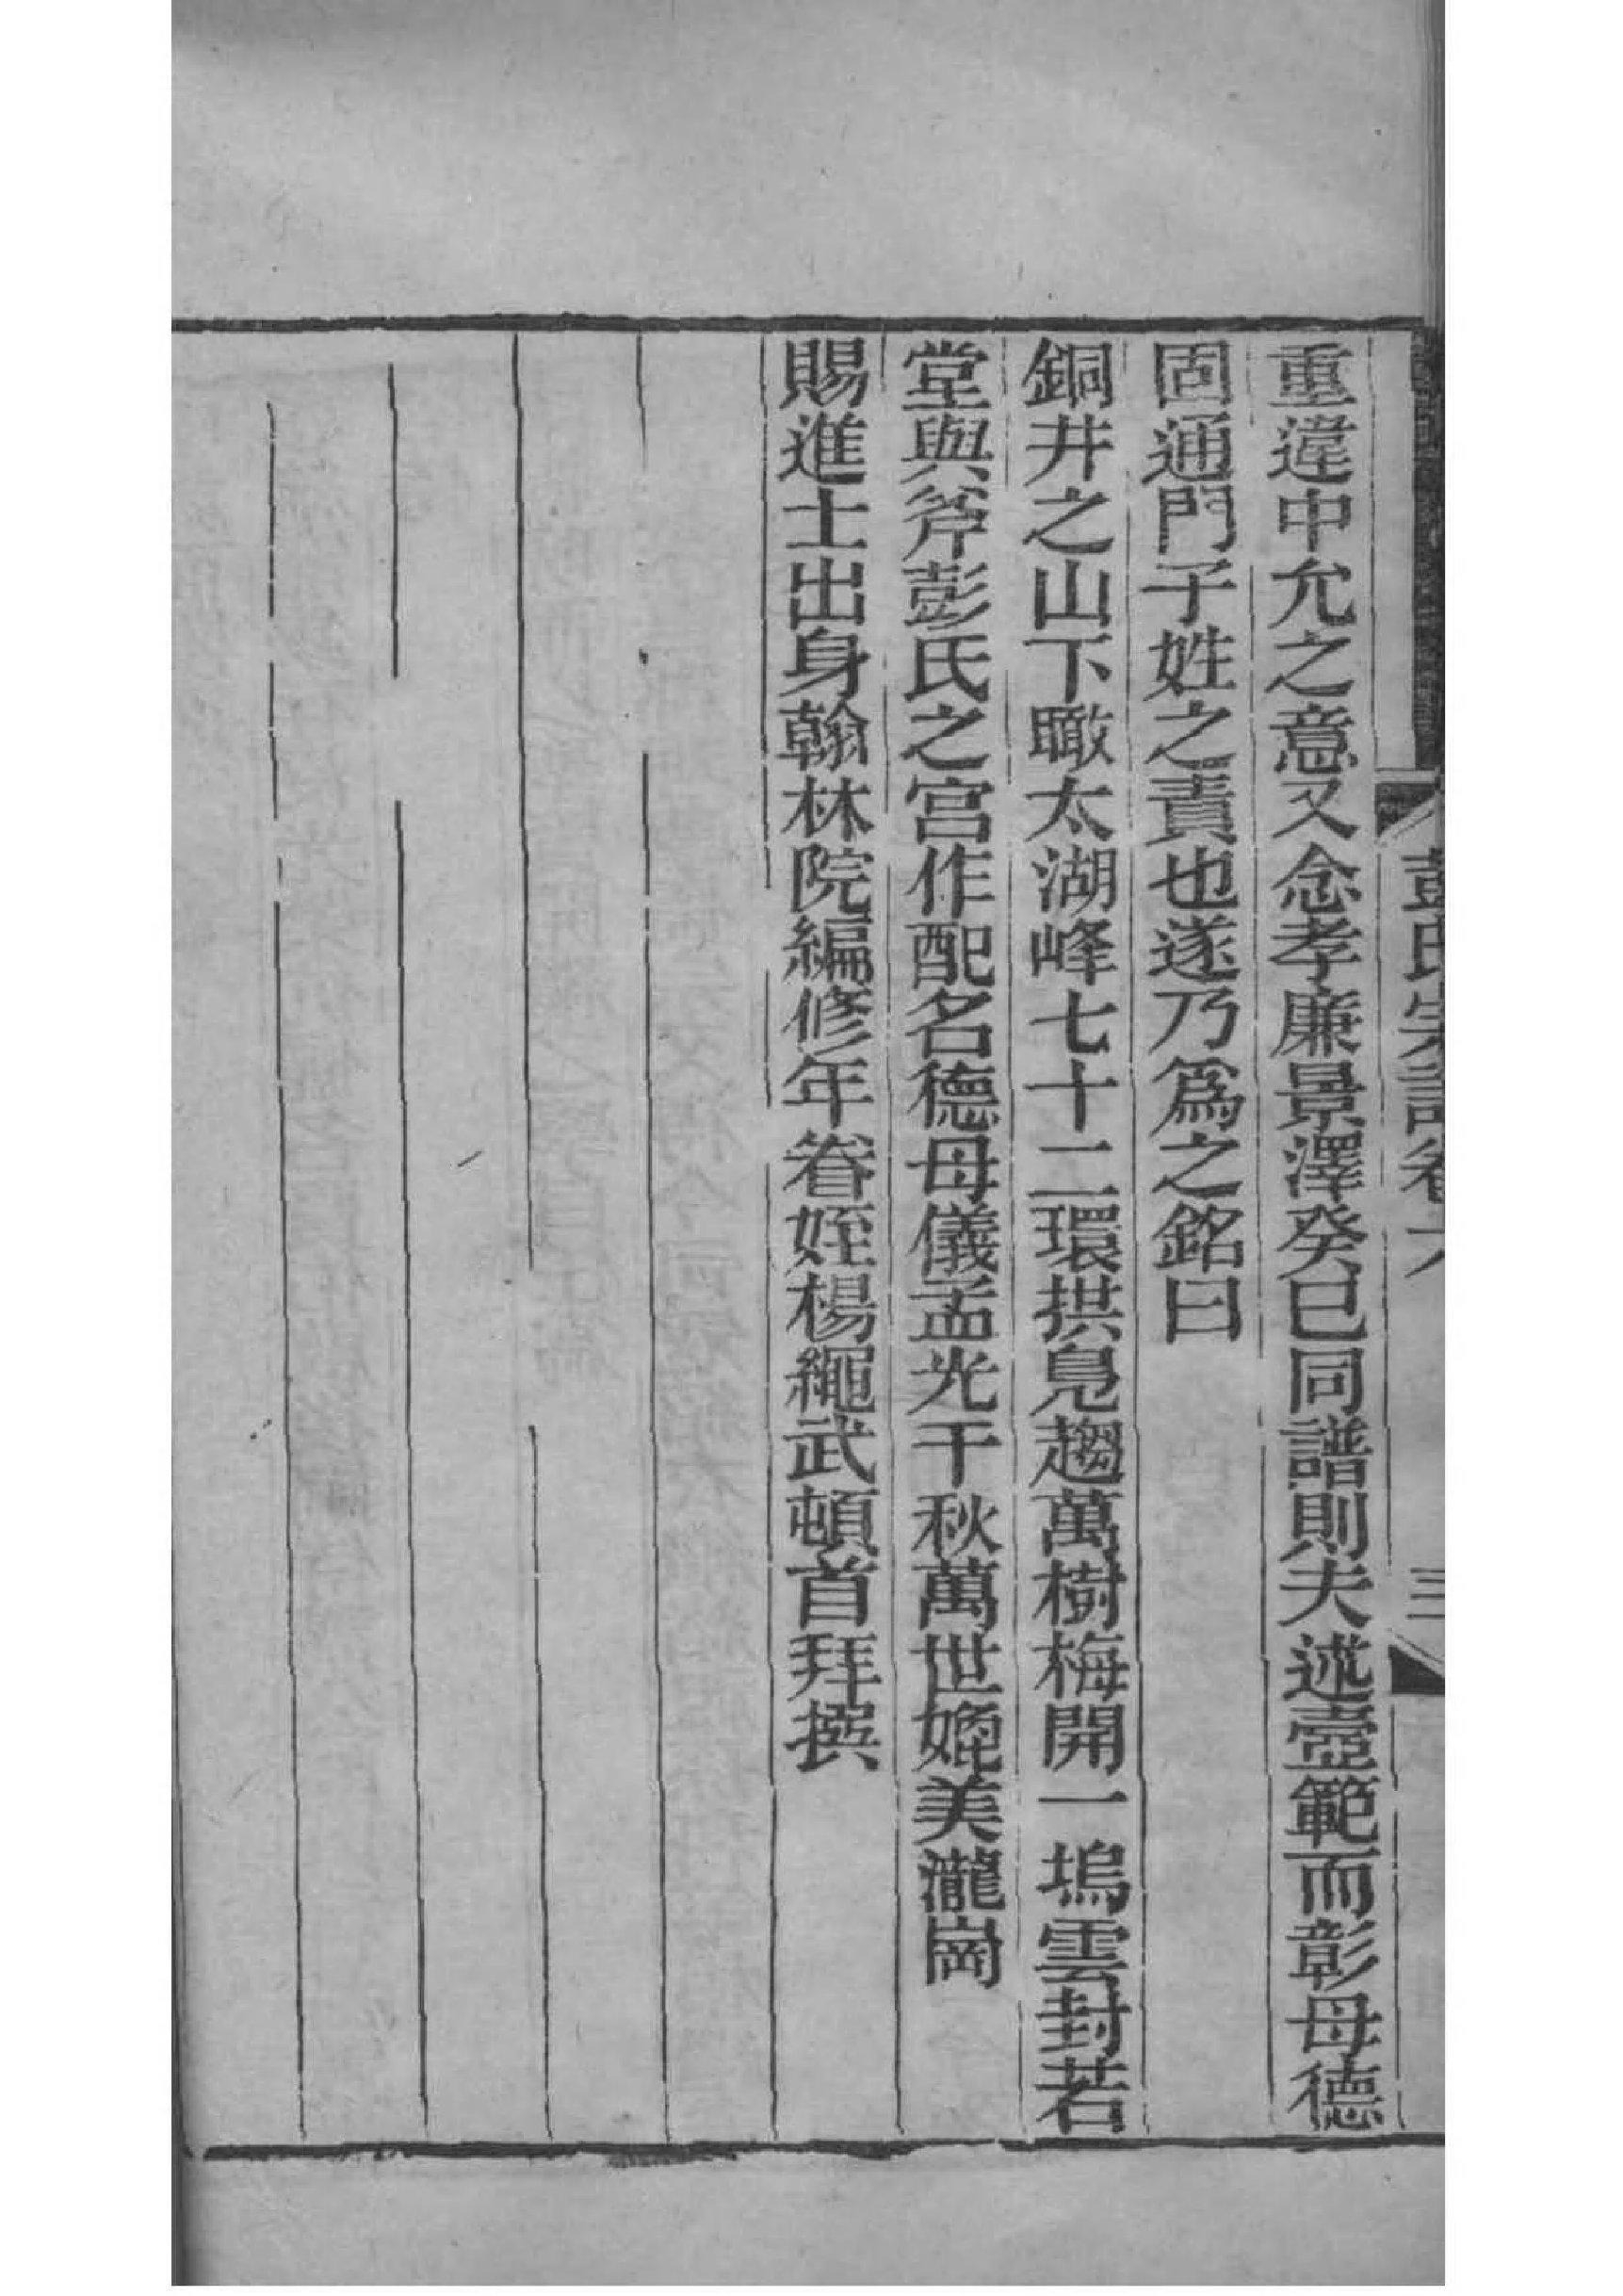 彭氏宗譜卷六
三
重違中允之意又念孝廉景澤癸巳同譜則夫述壼範而彰母德
固通門子姓之責也遂乃爲之銘曰
銅井之山下瞰太湖峰七十二環拱鳧趨萬樹梅開一塢雲封若
堂與斧彭氏之宮作配名德母儀孟光千秋萬世媲美瀧崗
賜進士出身翰林院編修年眷姪楊繩武頓首拜撰